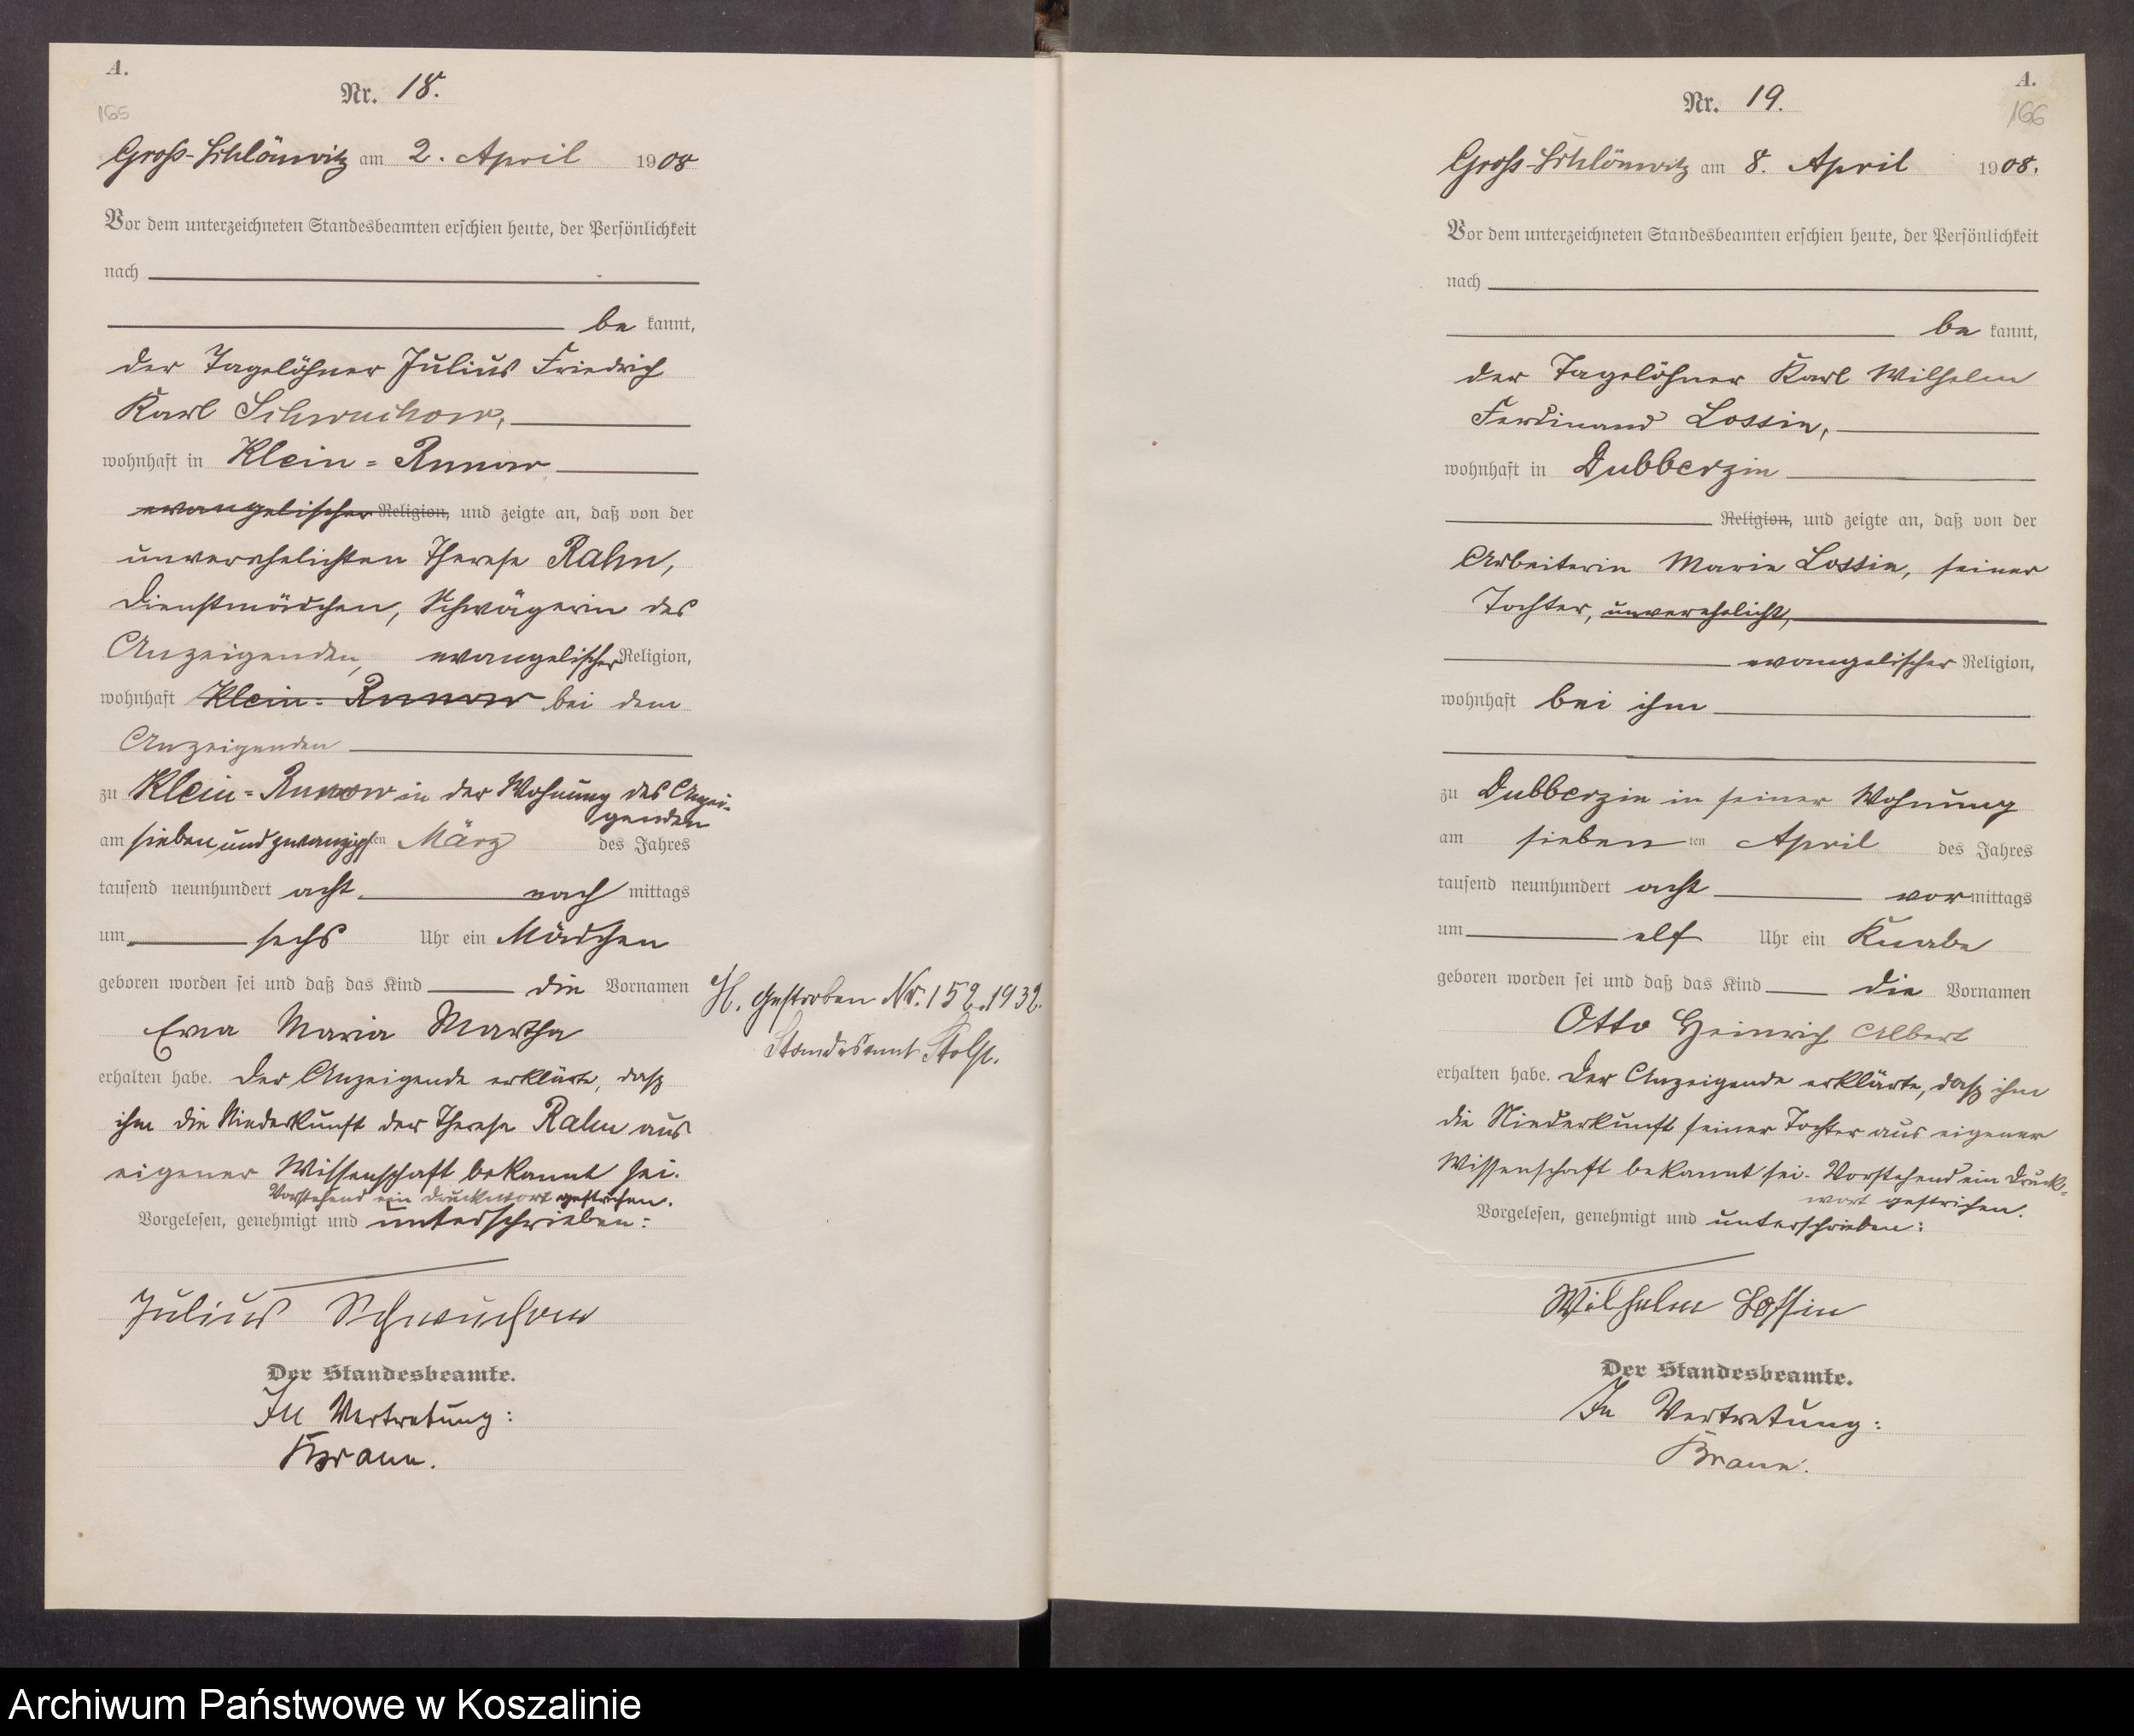 A.
165
Nr. 18.
Gross-Schlönwitz am 2. April 1908
Vor dem unterzeichneten Standesbeamten erschien heute, der Persönlichkeit
nach
be kannt,
der Tagelöhner Julius Friedrich
Karl Schwuchow,
wohnhaft in Klein-Runow
evangelischer Religion, und zeigte an, daß von der
unverehelichten Therese Rahn,
Dienstmädchen, Schwägerin des
Anzeigenden, evangelischer Religion,
wohnhaft Klein-Runow bei dem
Anzeigenden
zu Klein-Runow in der Wohnung des Anzei-
genden
am sieben und zwanzigsten März des Jahres
tausend neunhundert acht nach mittags
um sechs Uhr ein Mädchen
geboren worden sei und daß das Kind die Vornamen
Erna Maria Martha
erhalten habe. Der Anzeigende erklärte, dass
ihm die Niederkunft der Therese Rahn aus
eigener Wissenschaft bekannt sei.
Vorstehend ein Druckwort gestrichen.
Vorgelesen, genehmigt und unterschrieben:
Julius Schwuchow
Der Standesbeamte.
In Vertretung:
H. Gestorben Nr. 152.1932.
Standesamt Stolp.
A.
166
Nr. 19.
Gross-Schlönwitz am 8. April 1908.
Vor dem unterzeichneten Standesbeamten erschien heute, der Persönlichkeit
nach
be kannt,
der Tagelöhner Karl Wilhelm
Ferdinand Lossin,
wohnhaft in Dubberzin
Religion, und zeigte an, daß von der
Arbeiterin Marie Lossin, seiner
Tochter, unverehelicht,
evangelischer Religion,
wohnhaft bei ihm
zu Dubberzin in seiner Wohnung
am siebenten April des Jahres
tausend neunhundert acht vormittags
um elf Uhr ein Knabe
geboren worden sei und daß das Kind die Vornamen
Otto Heinrich Albert
erhalten habe. Der Anzeigende erklärte, dass ihm
die Niederkunft seiner Tochter aus eigener
Wissenschaft bekannt sei. Vorstehend ein Druck-
wort gestrichen.
Vorgelesen, genehmigt und unterschrieben:
Wilhelm Lossin
Der Standesbeamte.
In Vertretung:
Archiwum Państwowe w Koszalinie